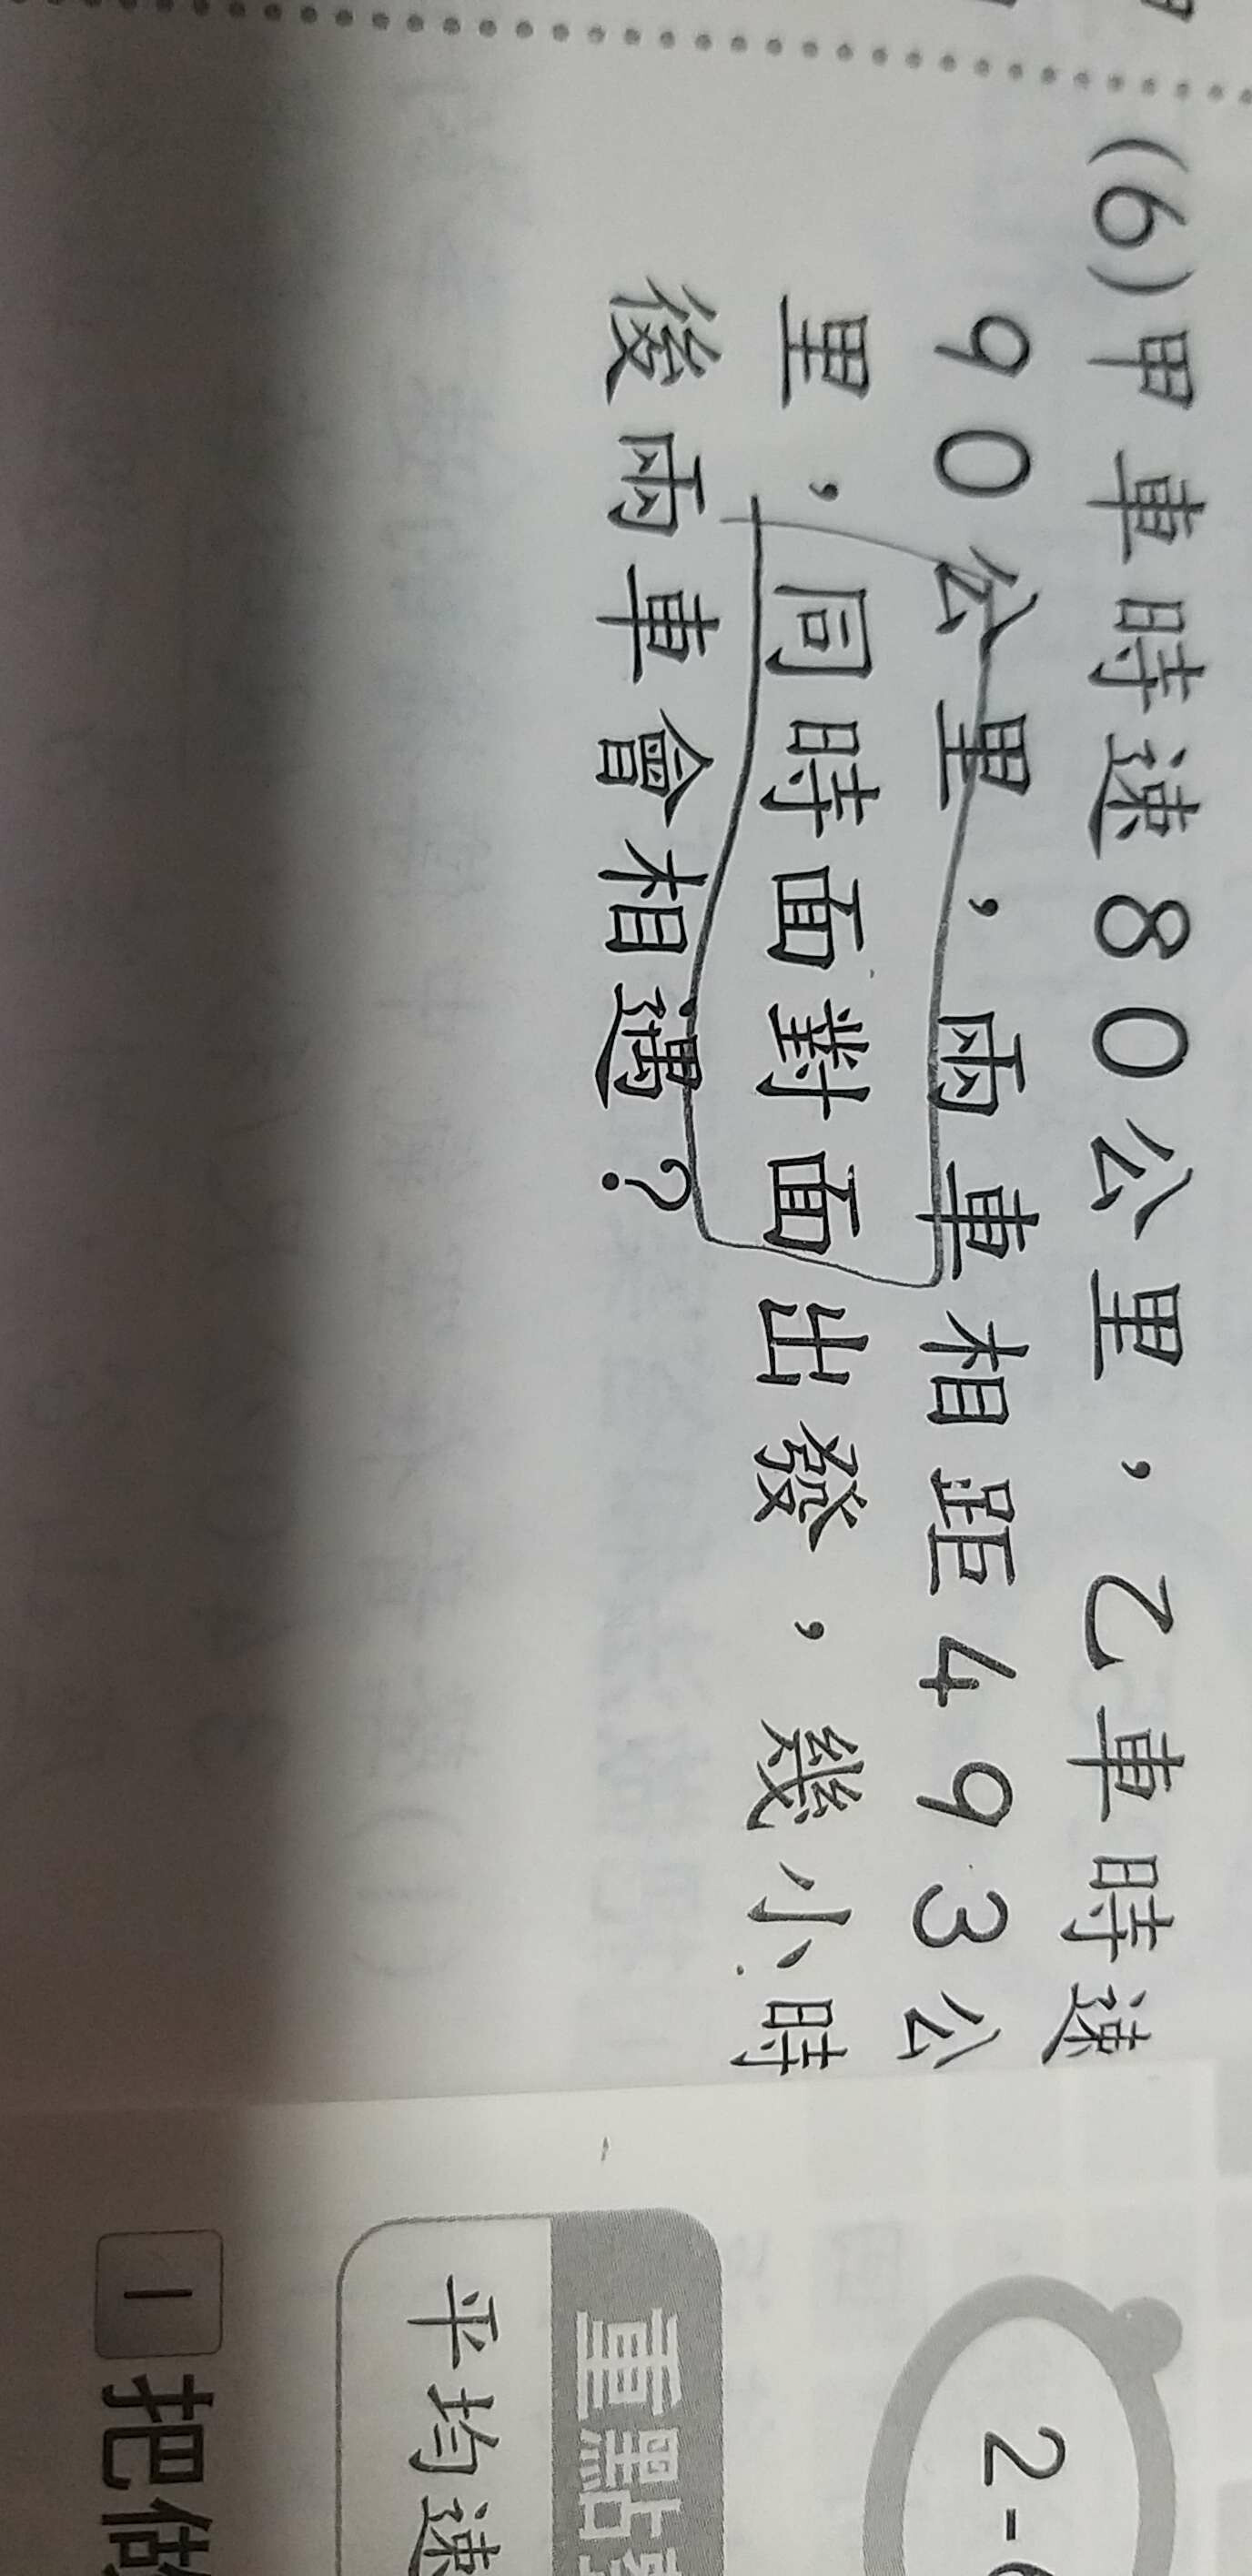 (6)甲車時速80公里，乙車時速
90公里，兩車相距493公
里，同時面對面出發，幾小時
後兩車會相遇？
2-
重點
平均速
1 把